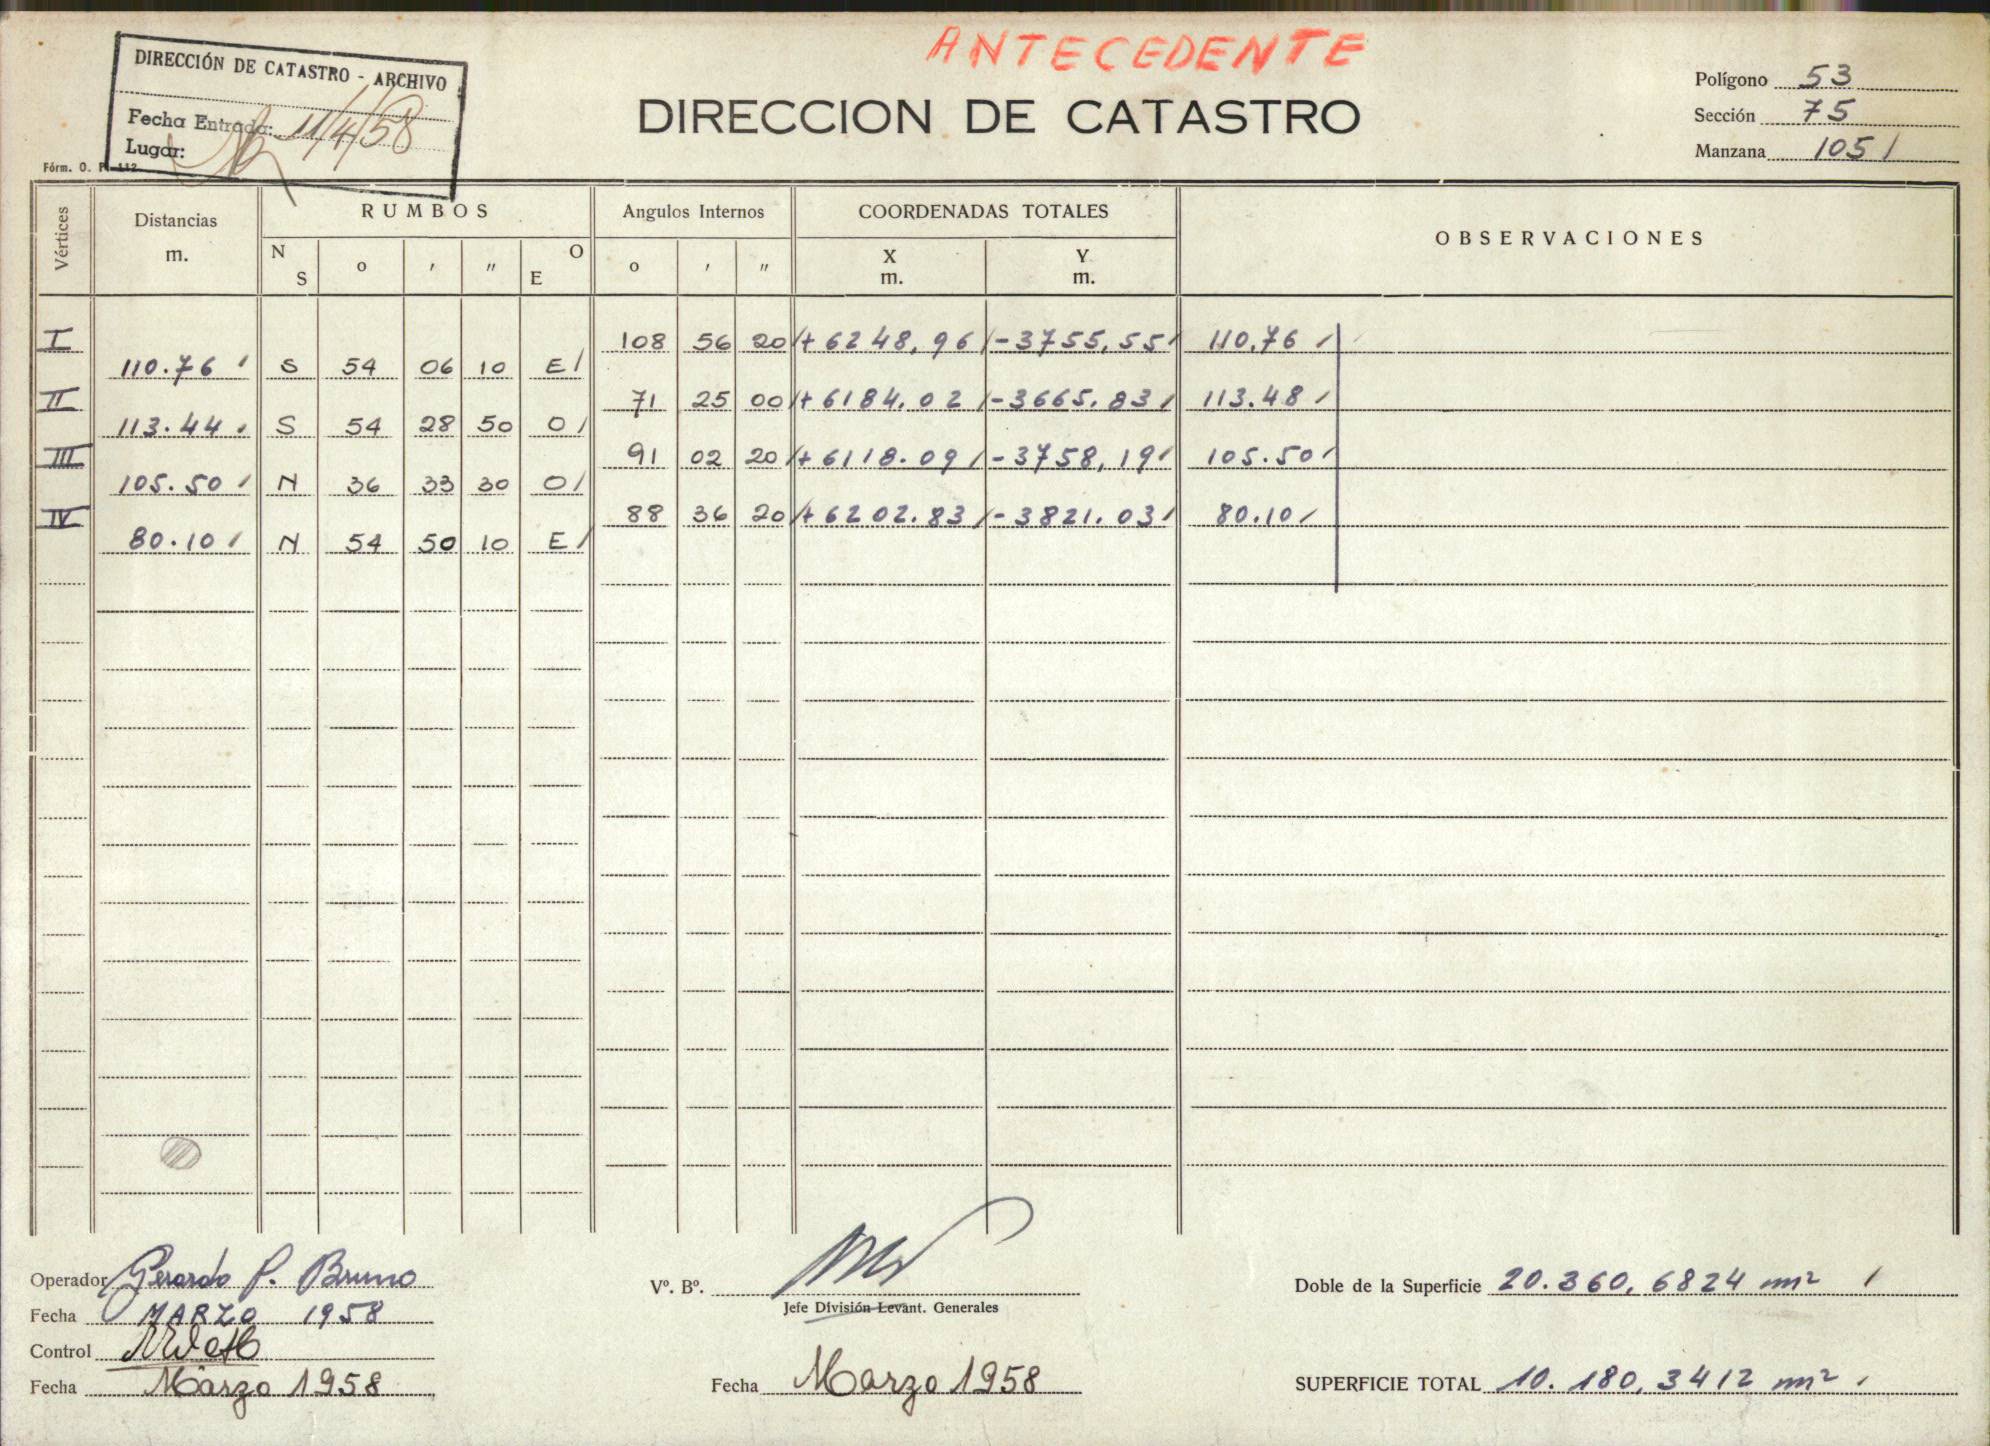 ANTECEDENTE
DIRECCIÓN DE CATASTRO - ARCHIVO
Fecha Entrada: 11/4/58
Lugar:
Fórm. O. P. 112
DIRECCION DE CATASTRO
Polígono 53
Sección 75
Manzana 1051
Vértices Distancias m. RUMBOS Angulos Internos COORDENADAS TOTALES OBSERVACIONES
N S ° ' " E O ° ' " X m. Y m.
I 108 56 20 + 6248,96 - 3755,55 110,76
110.76 S 54 06 10 E
II 71 25 00 + 6184.02 - 3665.83 113.48
113.44 S 54 28 50 O
III 91 02 20 + 6118.09 - 3758,19 105.50
105.50 N 36 33 30 O
IV 88 36 20 + 6202.83 - 3821.03 80.10
80.10 N 54 50 10 E
Operador Gerardo P. Bruno
Fecha MARZO 1958
Control
Fecha Marzo 1958
Vº. Bº.
Jefe División Levant. Generales
Fecha Marzo 1958
Doble de la Superficie 20.360,6824 m²
SUPERFICIE TOTAL 10.180,3412 m²